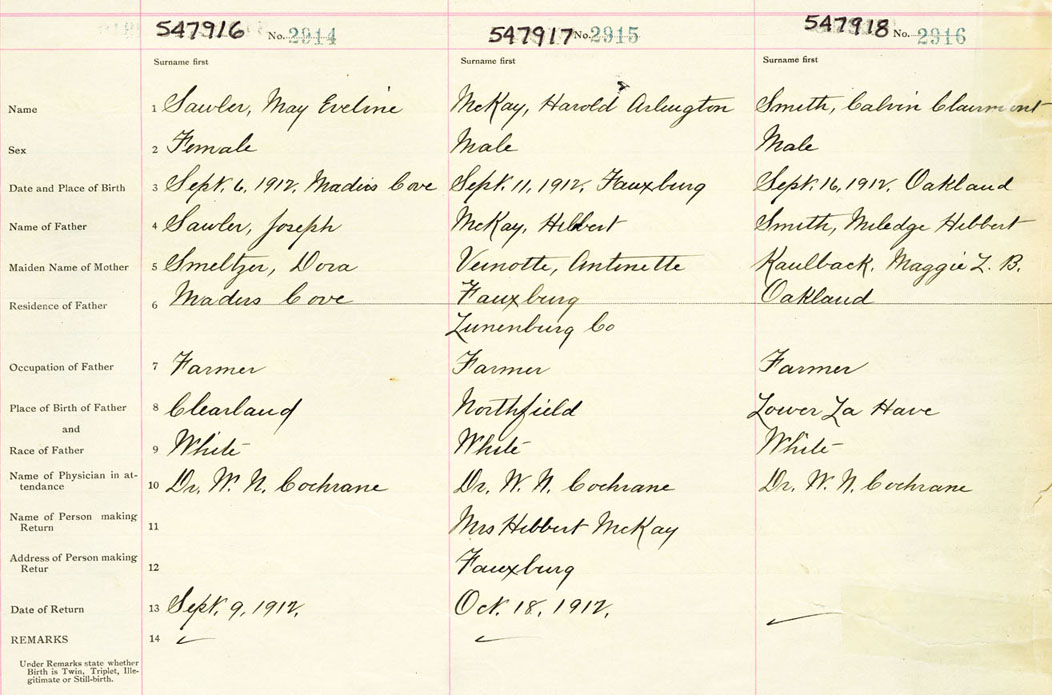 547916 No. 2914 547917 No. 2915 547918 No. 2916
Surname first Surname first Surname first
Name 1 Sawler, May Eveline McKay, Harold Arlington Smith, Calvin Clairmont
Sex 2 Female Male Male
Date and Place of Birth 3 Sept. 6, 1912, Maders Cove Sept. 11, 1912, Fauxburg Sept. 16, 1912, Oakland
Name of Father 4 Sawler, Joseph McKay, Hibbert Smith, Miledge Hibbert
Maiden Name of Mother 5 Smeltzer, Dora Veinotte, Antinette Kaulback, Maggie L. B.
Residence of Father 6 Maders Cove Fauxburg Oakland
Lunenburg Co
Occupation of Father 7 Farmer Farmer Farmer
Place of Birth of Father 8 Clearland Northfield Lower La Have
and
Race of Father 9 White White White
Name of Physician in at-
tendance 10 Dr. W. N. Cochrane Dr. W. N. Cochrane Dr. W. N. Cochrane
Name of Person making
Return 11 Mrs Hibbert McKay
Address of Person making
Retur 12 Fauxburg
Date of Return 13 Sept. 9, 1912, Oct. 18, 1912,
REMARKS 14
Under Remarks state whether
Birth is Twin, Triplet, Ille-
gitimate or Still-birth.